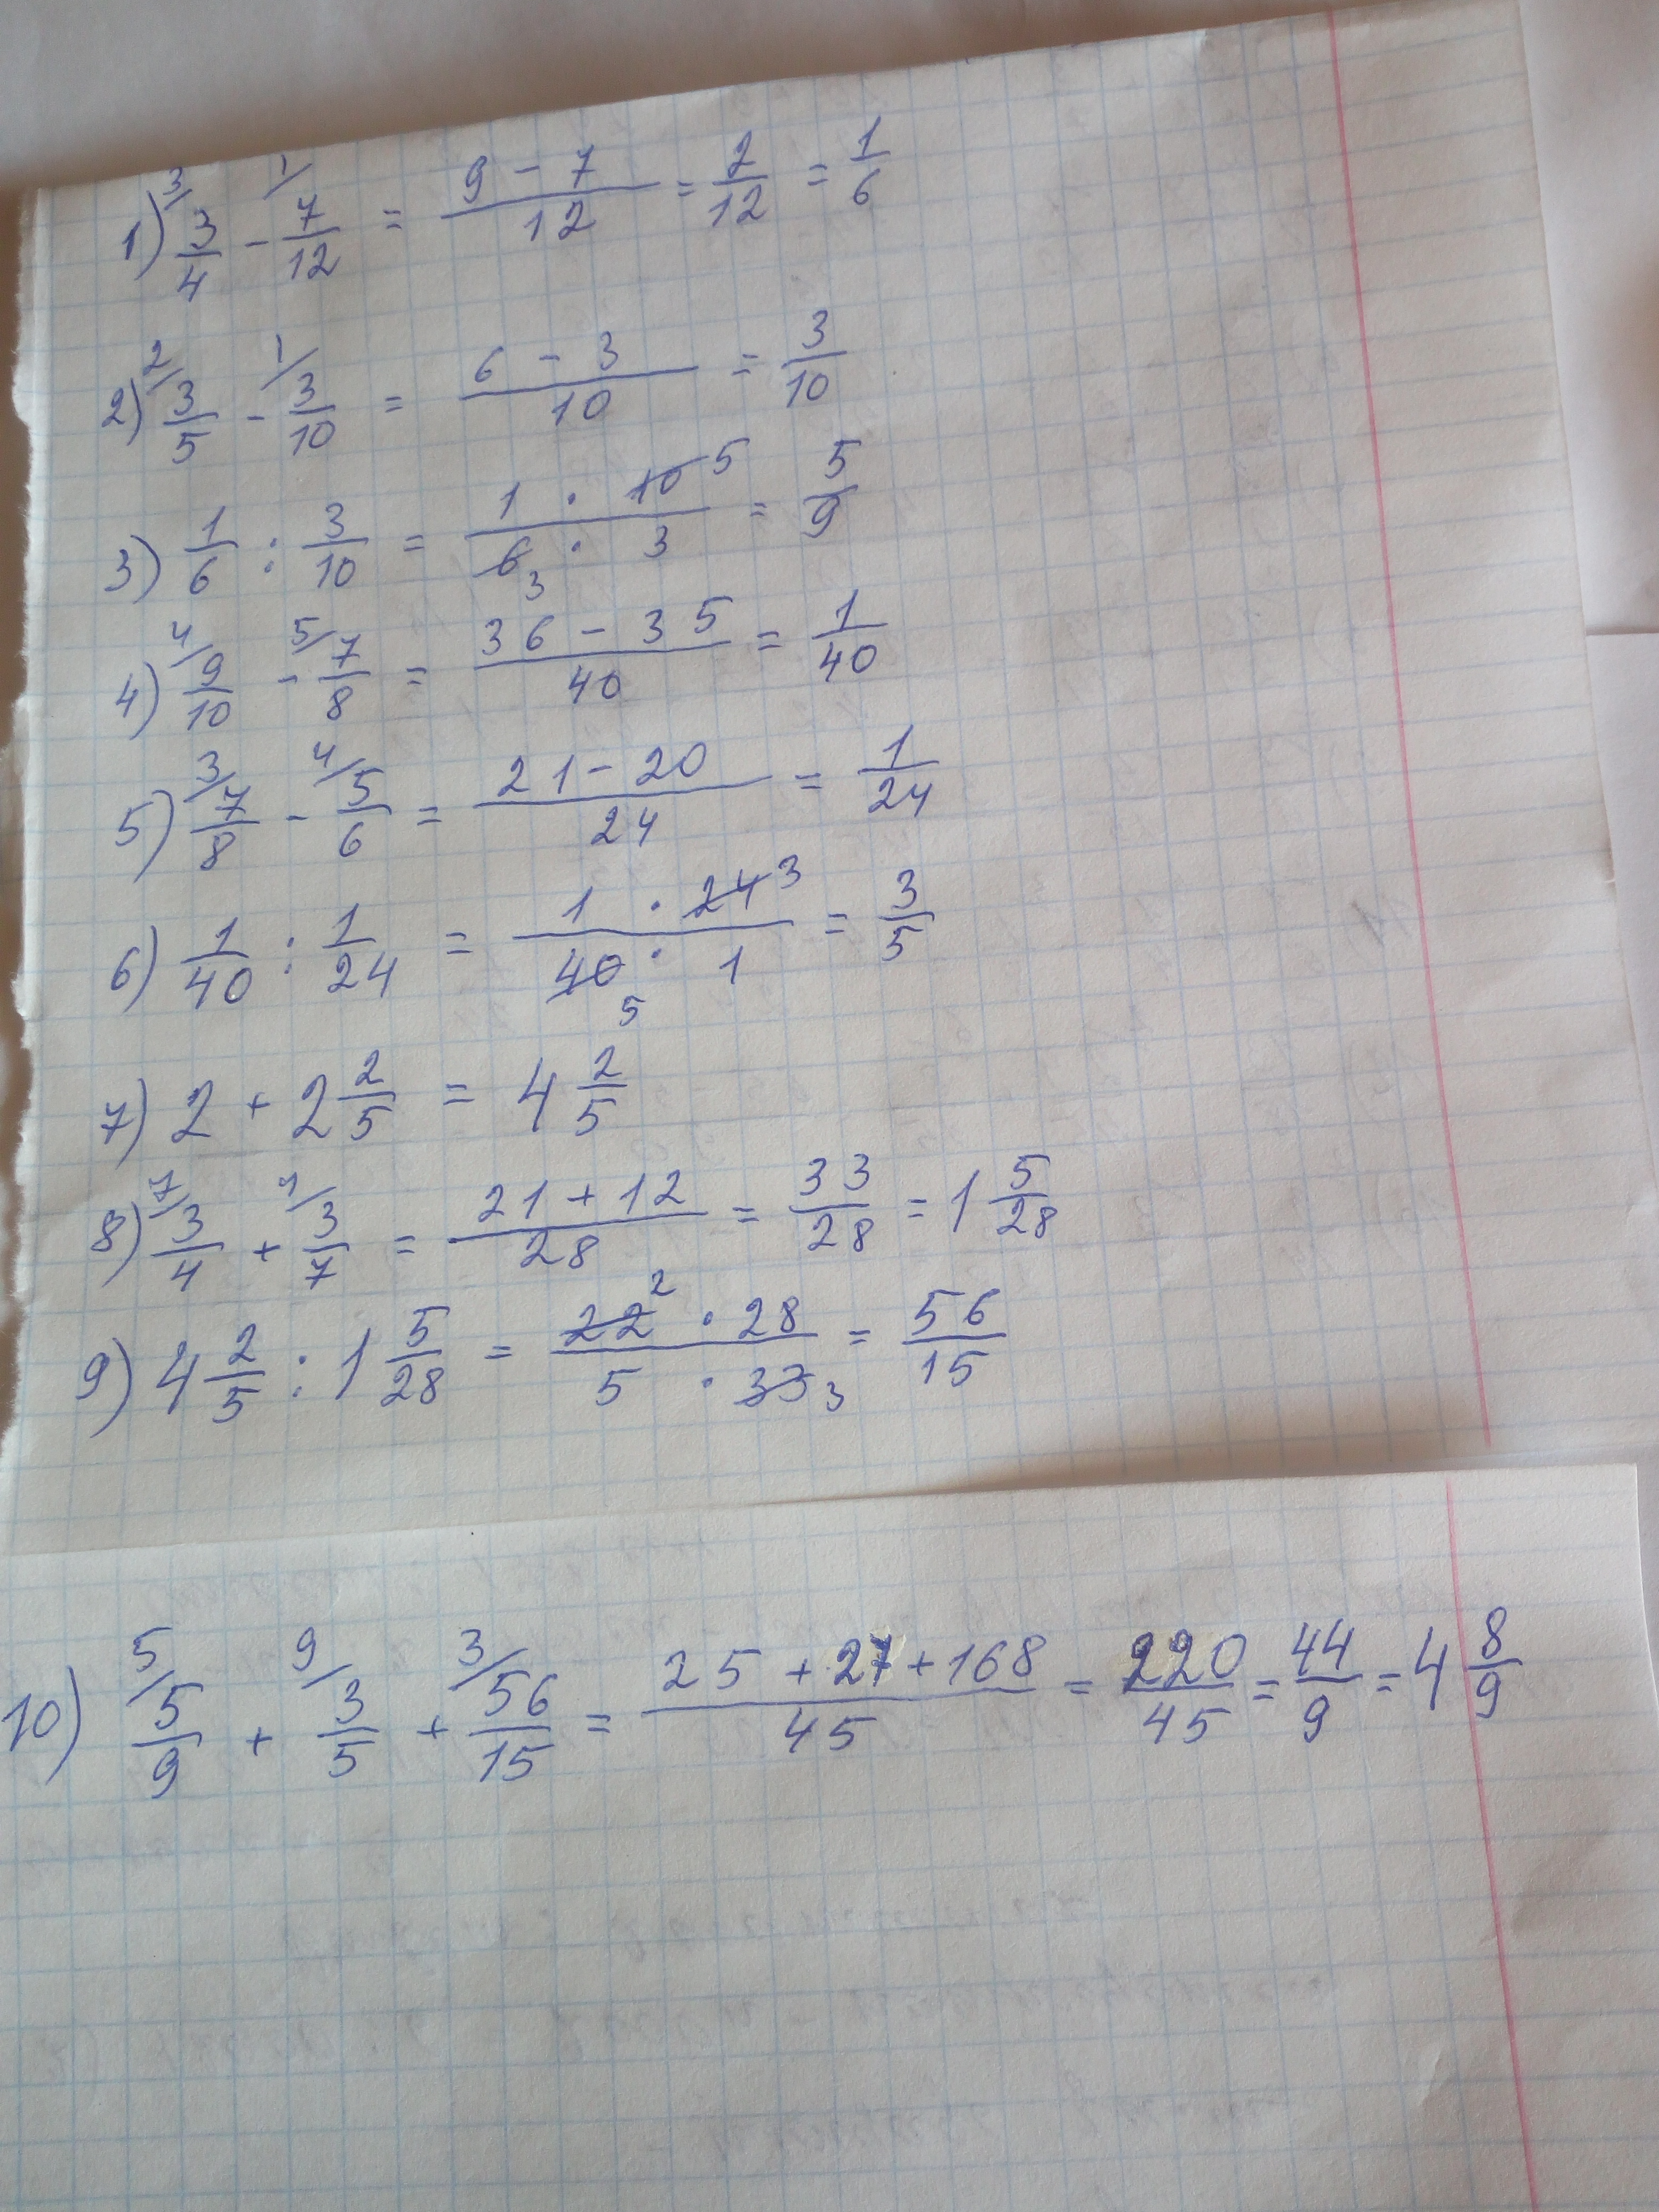 1) 3/ 3/4 - 1/ 7/12 = (9 - 7)/12 = 2/12 = 1/6
2) 2/ 3/5 - 1/ 3/10 = (6 - 3)/10 = 3/10
3) 1/6 : 3/10 = (1 · 10 5)/(6 3 · 3) = 5/9
4) 4/ 9/10 - 5/ 7/8 = (36 - 35)/40 = 1/40
5) 3/ 7/8 - 4/ 5/6 = (21 - 20)/24 = 1/24
6) 1/40 : 1/24 = (1 · 24 3)/(40 5 · 1) = 3/5
7) 2 + 2 2/5 = 4 2/5
8) 7/ 3/4 + 4/ 3/7 = (21 + 12)/28 = 33/28 = 1 5/28
9) 4 2/5 : 1 5/28 = (22 2 · 28)/(5 · 33 3) = 56/15
10) 5/ 5/9 + 9/ 3/5 + 3/ 56/15 = (25 + 27 + 168)/45 = 220/45 = 44/9 = 4 8/9